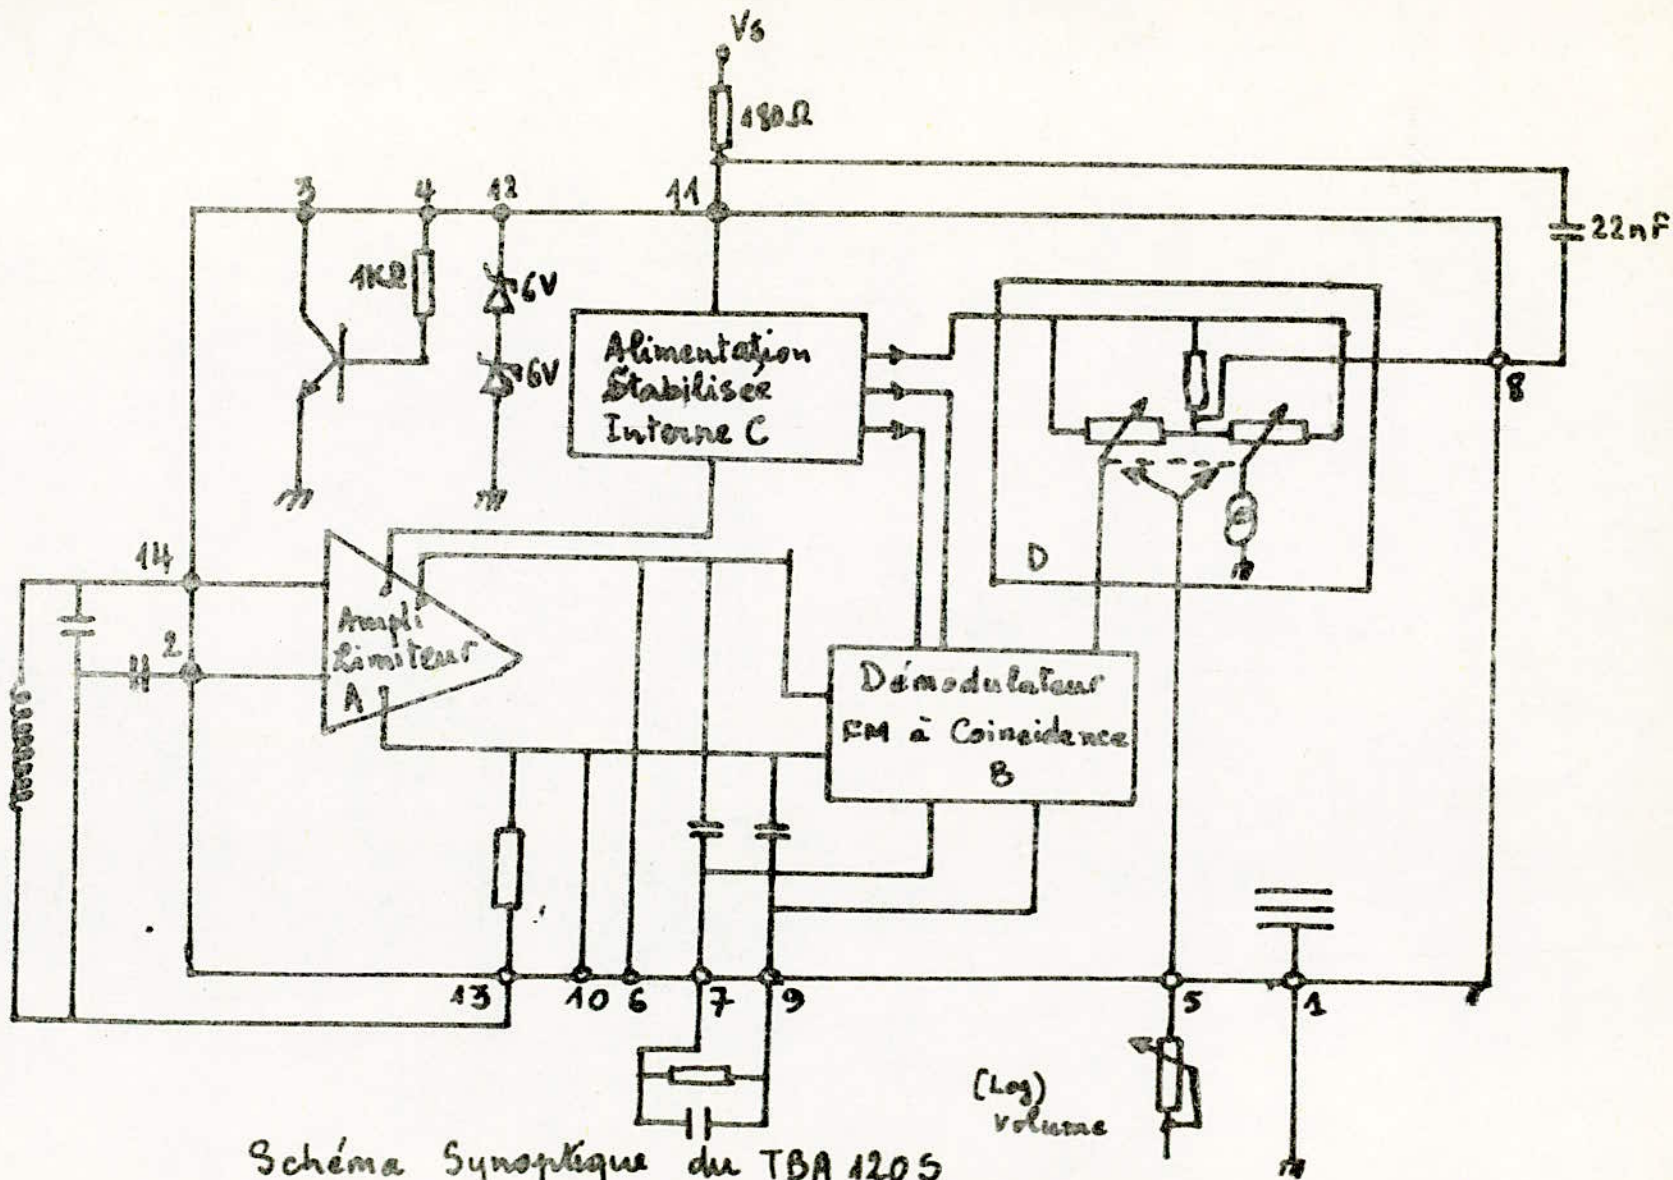 Vs
180Ω
3
4
12
11
22nF
1KΩ
6V
6V
Alimentation
Stabilisée
Interne C
8
D
14
2
Ampli
Limiteur
A
Démodulateur
FM à Coincidence
B
13
10
6
7
9
5
1
(Log)
Volume
Schéma Synoptique du TBA 120S